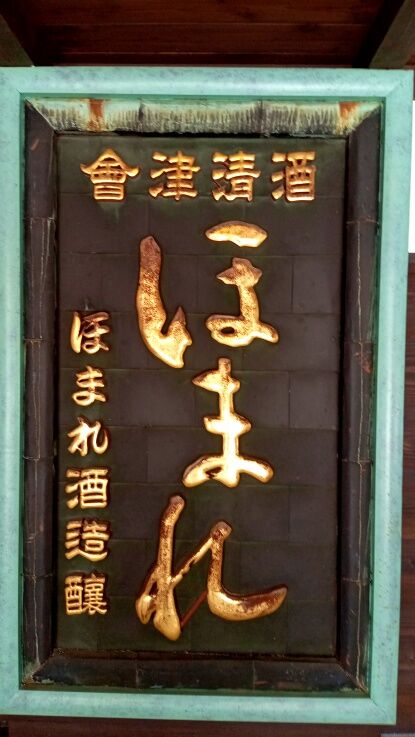 會津清酒
ほまれ
ほまれ酒造醸